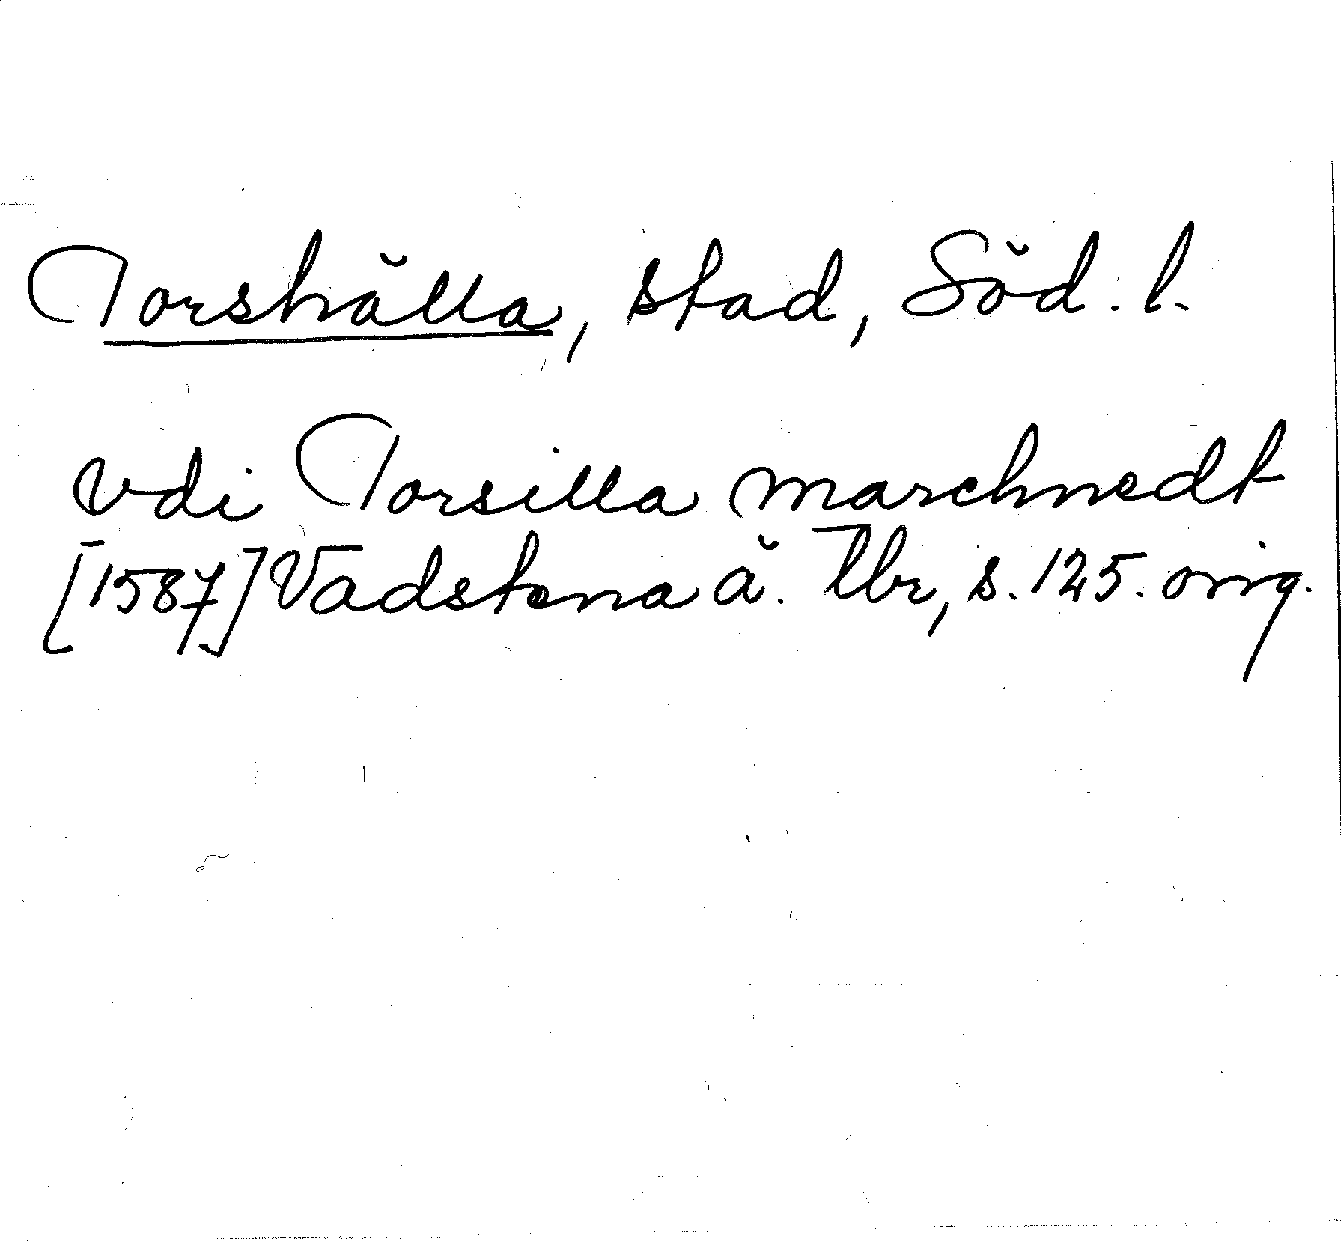 Torshälla, stad, Söd. l.
vdi Torsilla marchnedt
[1587] Vadstena ä. Tbr, s. 125. orig.